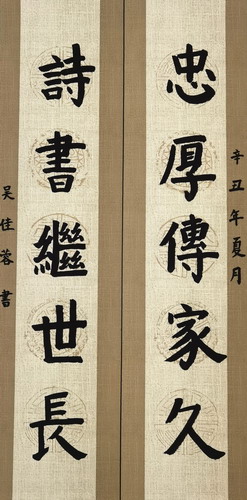 辛丑年夏月
忠厚傳家久
詩書繼世長
吳佳蓉書